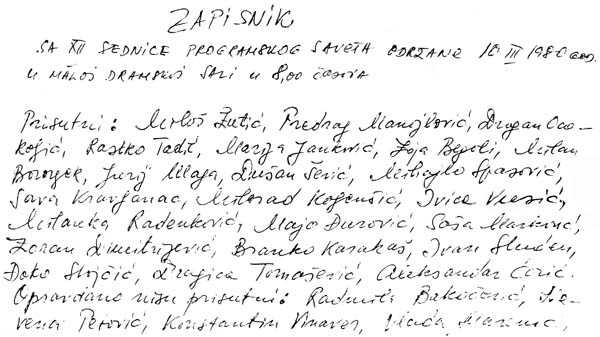 ZAPISNIK
SA XII SEDNICE PROGRAMSKOG SAVETA ODRŽANE 10 III 1980 GOD.
U MALOJ DRAMSKOJ SALI U 8,00 ČASOVA
Prisutni: Miloš Žutić, Predrag Manojlović, Dragan Oco-
koljić, Rastko Tadić, Marija Janković, Zoja Begoli, Milan
Jurij Dušan Mihajlo Spasović,
Sava Milorad Ivica
Milanka Radenković, Majo Đurović, Saša
Zoran Dimitrijević, Branko Karakaš, Ivan
Đoko Stojčić, Dragica Tomašević, Aleksandar Ćorić.
Opravdano nisu prisutni: Radmila Je-
vena Petović, Konstantin Vinaver, Vlada